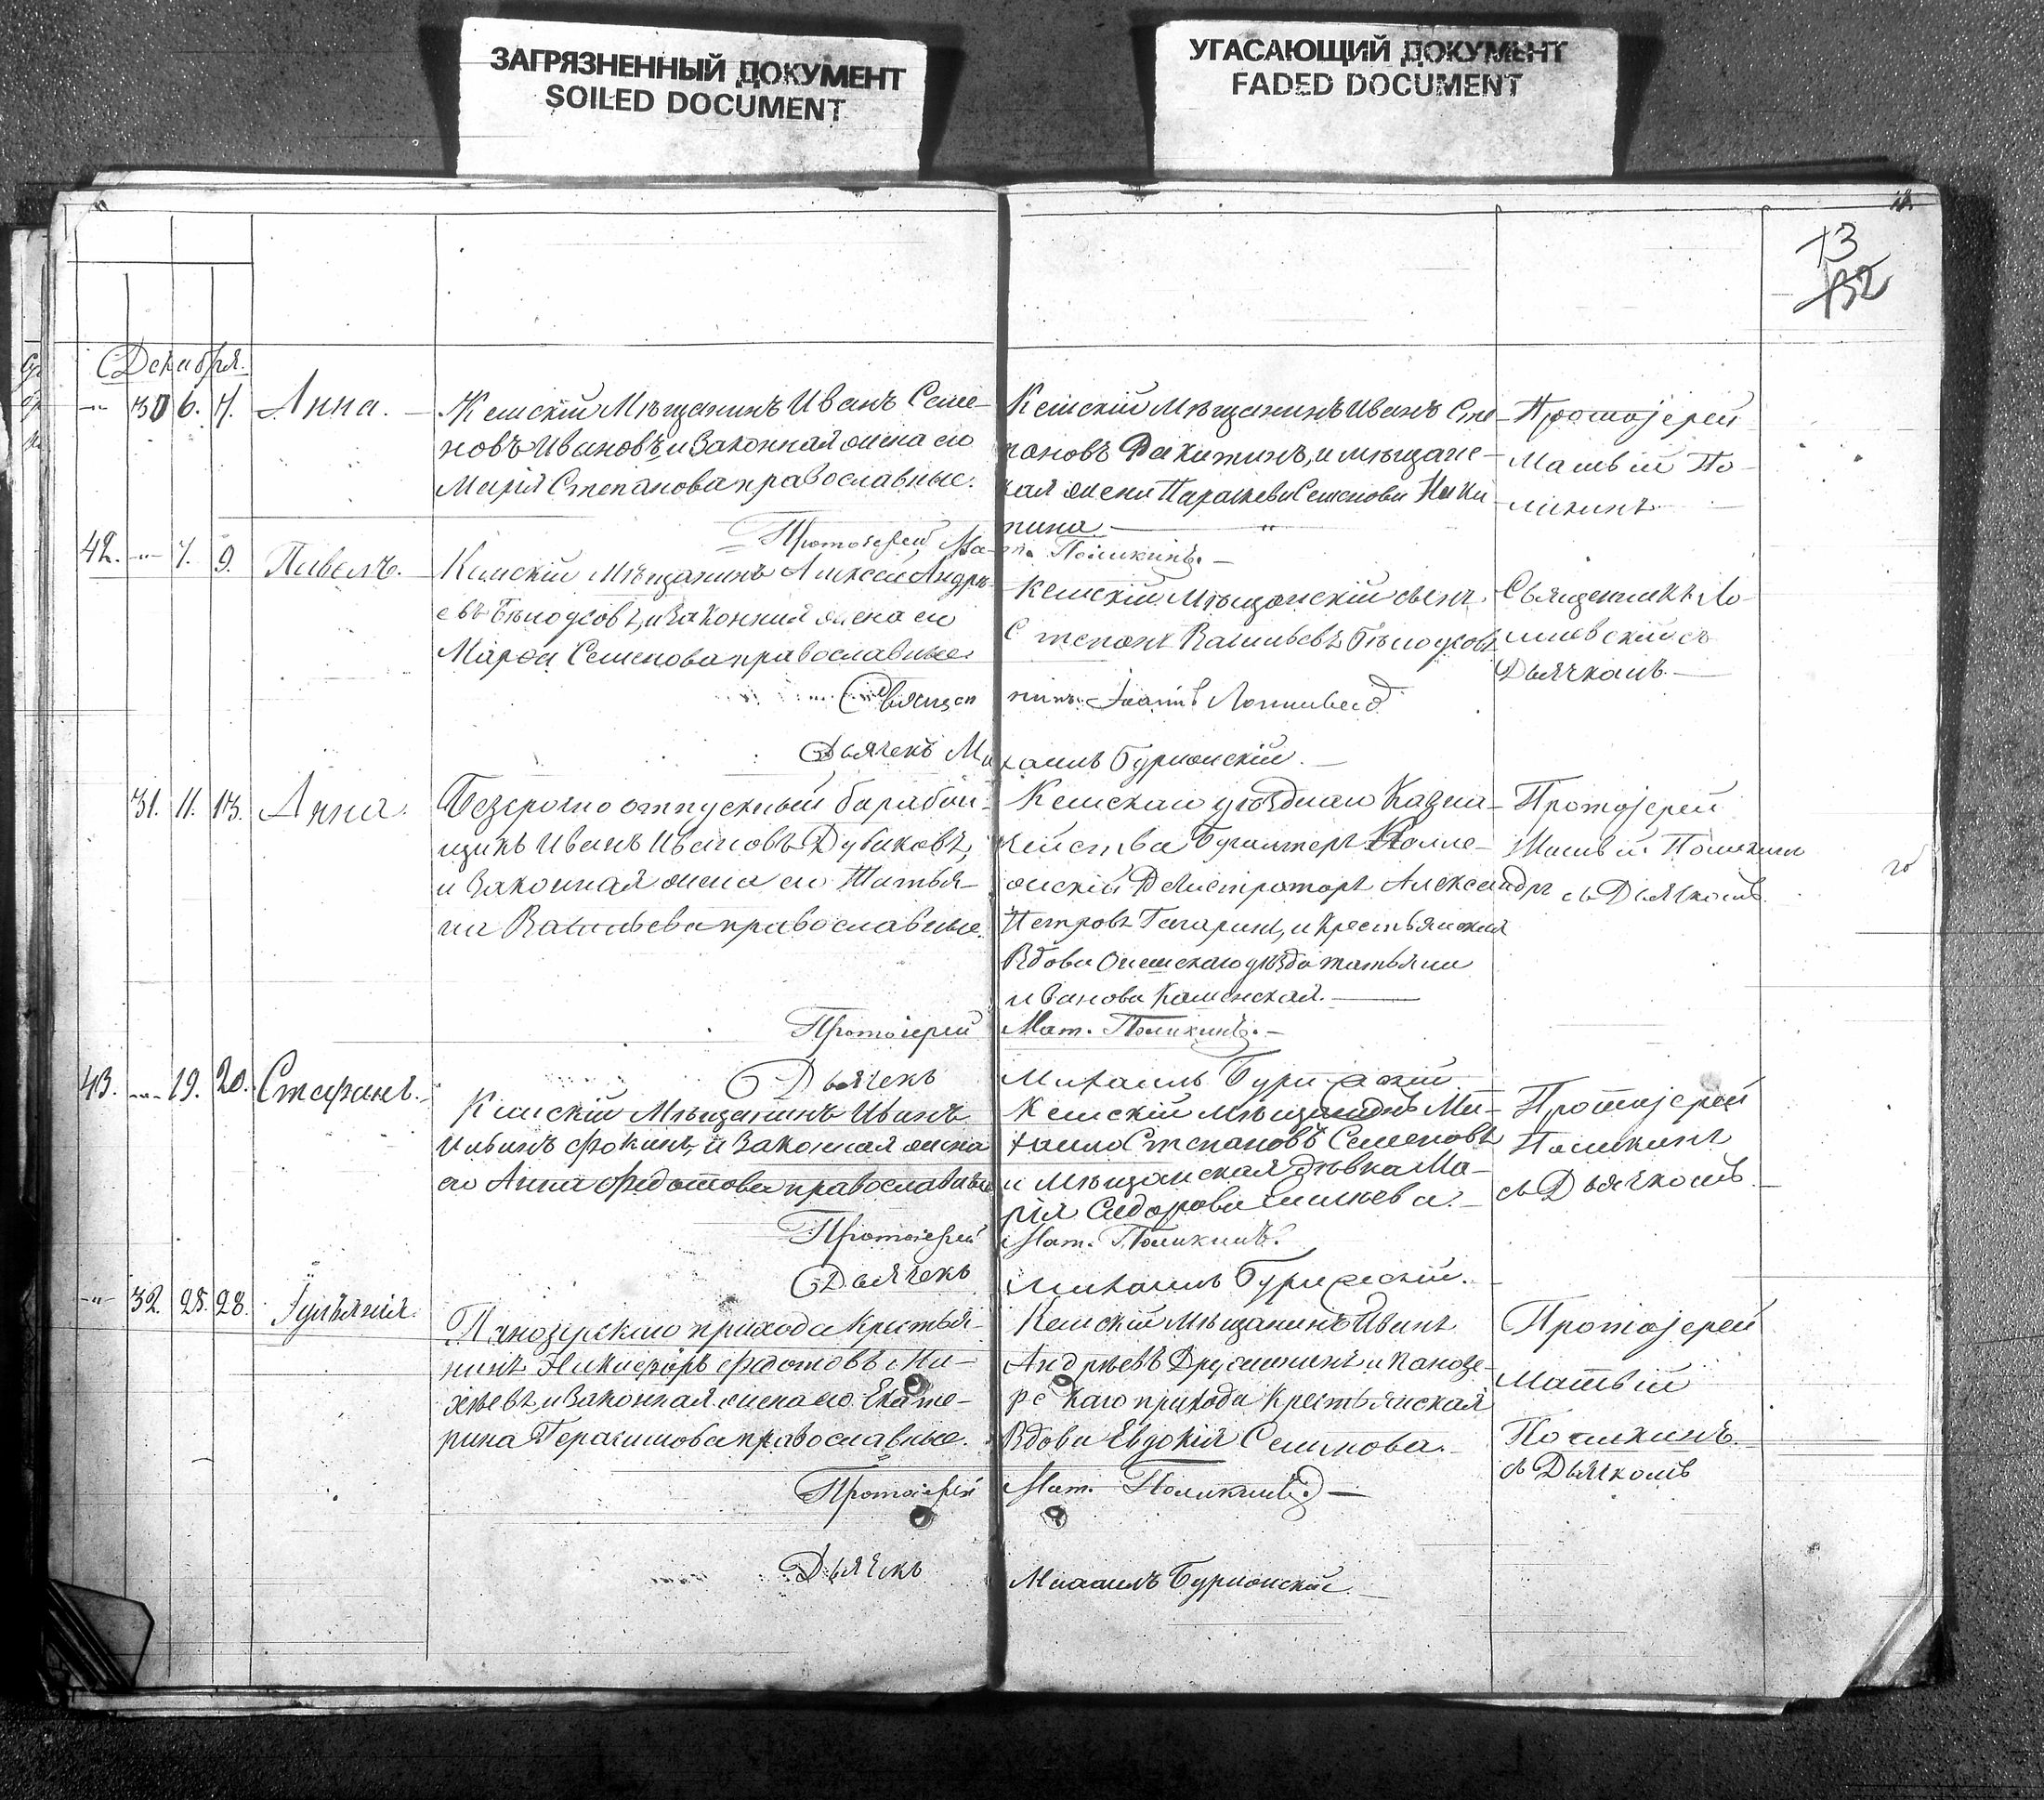 ЗАГРЯЗНЕННЫЙ ДОКУМЕНТ
SOILED DOCUMENT
УГАСАЮЩИЙ ДОКУМЕНТ
FADED DOCUMENT
13
132
Декабря.
30 6. 7. Анна.
Кемскій Мѣщанинъ Иванъ Семе-
новъ Ивановъ, и Законная жена его
Марія Степанова православные.
Кемскій Мѣщанинъ Иванъ Сте-
пановъ и мѣщанс-
кая жена Параскева Семенова Ники
тина
Протоіерей
Матвій По-
Протоіерей Мат.
42. 7. 9. Павелъ.
Кемскій Мѣщанинъ Алексей Андре-
евъ Бѣлоусовъ, и Законная жена его
Марѳа Семенова православные.
Кемскій Мѣщанскій сынъ
Степанъ Васильевъ Бѣлоусовъ
Священникъ
съ
Дьячкомъ.
Священникъ Іоаннъ
Дьячекъ Михаилъ
31. 11. 13. Анна.
Безсрочно отпускный барабан-
щикъ Иванъ Ивановъ Дубаковъ,
и Законная жена его Татья-
на Васильева православные.
Кемскаго уѣзднаго Казна-
чейства Бугалтеръ Колле-
жскій Регистраторъ Александръ
Петровъ Гагаринъ, и крестьянская
Вдова Онежскаго уѣзда Татьяна
Иванова Каменская.
Протоіерей
Матвій
съ Дьячкомъ.
Протоіерей Мат.
Дьячекъ Михаилъ
43. 19. 20. Стефанъ.
Кемскій Мѣщанинъ Иванъ
Ильинъ Фокинъ, и Законная жена
его Анна Федотова православные
Кемскій мѣщанинъ Ми-
хаило Степановъ Семеновъ
и Мѣщанская дѣвка Ма-
рія Сидорова
Протоіерей
съ Дьячкомъ.
Протоіерей Мат.
Дьячекъ Михаилъ
32. 25. 28. Іуліанія.
Панозерскаго прихода Крестья-
нинъ Никифоръ Федотовъ Ми-
хѣевъ, и Законная жена его Екате-
рина Герасимова православные.
Кемскій мѣщанинъ Иванъ
Андрѣевъ Дружининъ и Панозе-
рскаго прихода Крестьянская
Вдова Евдокія Семенова.
Протоіерей
Матвій
съ Дьячкомъ
Протоіерей Мат.
Дьячекъ Михаилъ